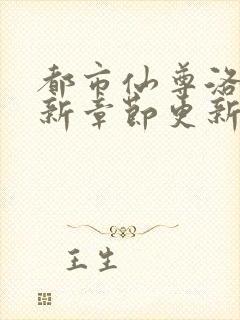 都市仙尊洛
新章节更新
王生